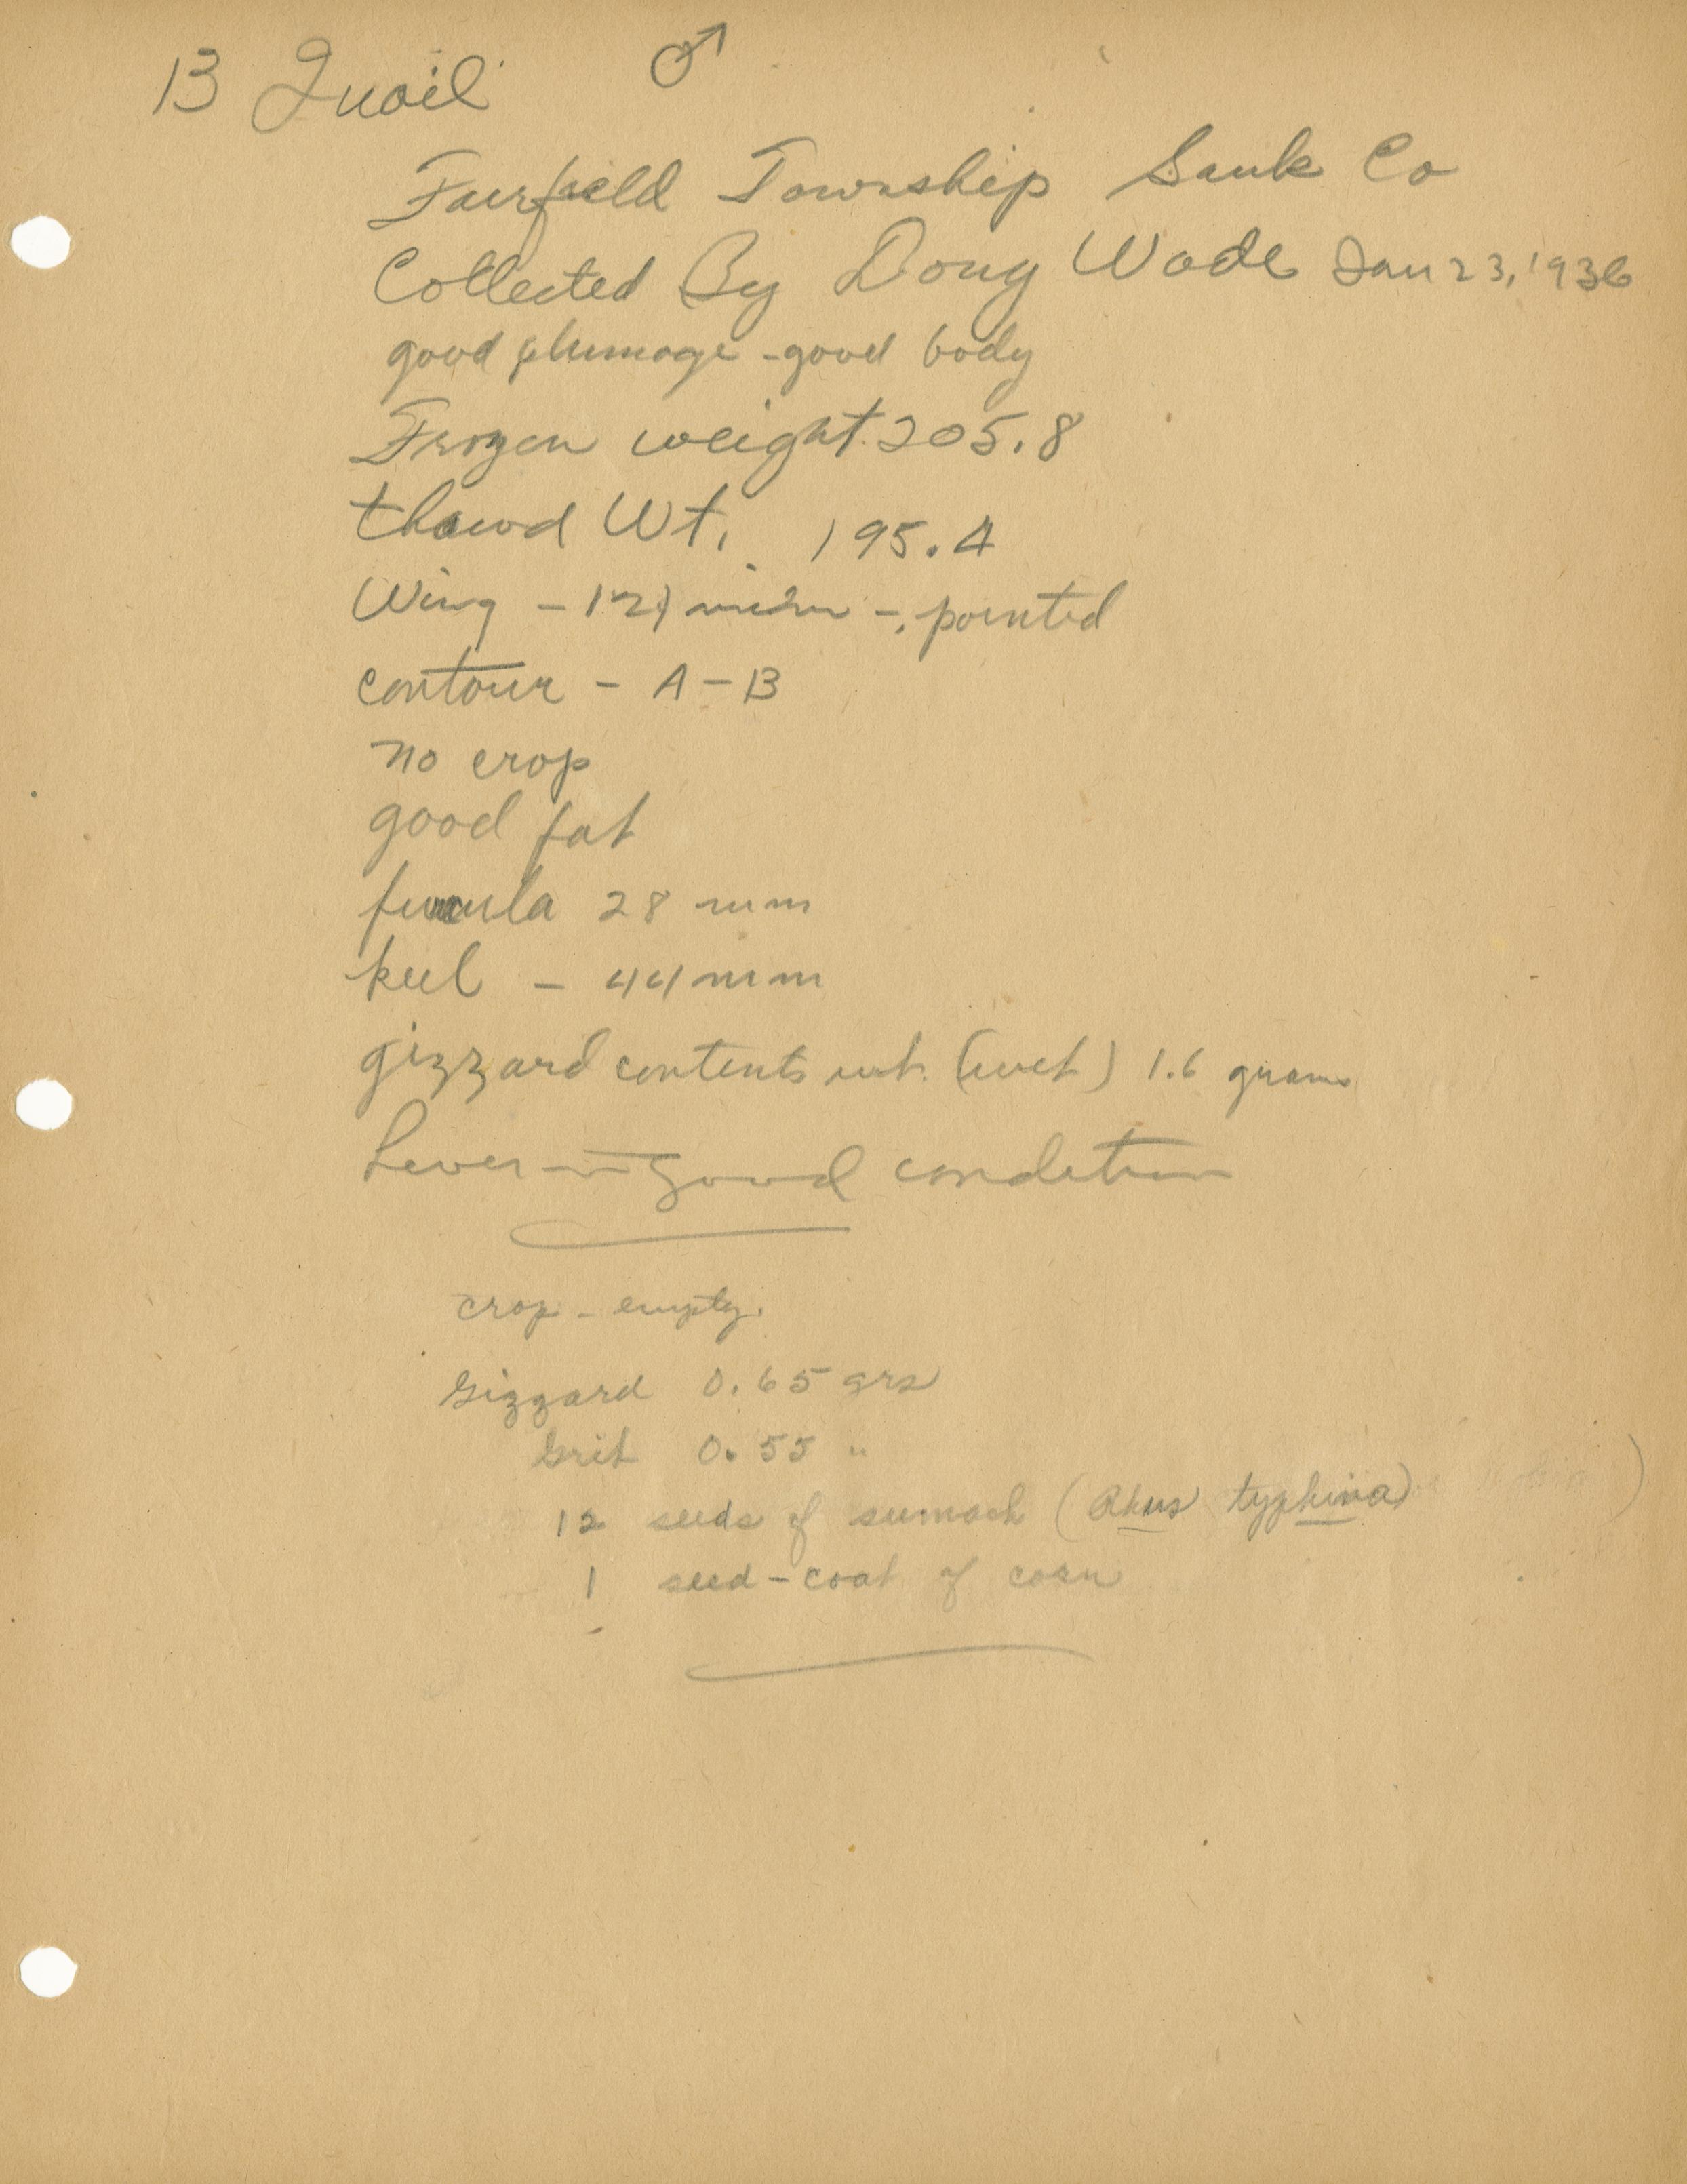 13 Quail ♂
Fairfield Township Sauk Co
Collected By Doug Wade Jan 23, 1936
good plumage - good body
Frozen weight. 205.8
thawd Wt. 195.4
Wing - 121 - pointed
contour - A - B
no crop
good fat
furcula 28 mm
keel - 44 mm
gizzard contents wt. (wet) 1.6 grams
Liver - good condition
crop - empty.
Gizzard 0.65 grs
Grit 0.55 "
12 seeds of sumach (Rhus typhina)
1 seed-coat of corn